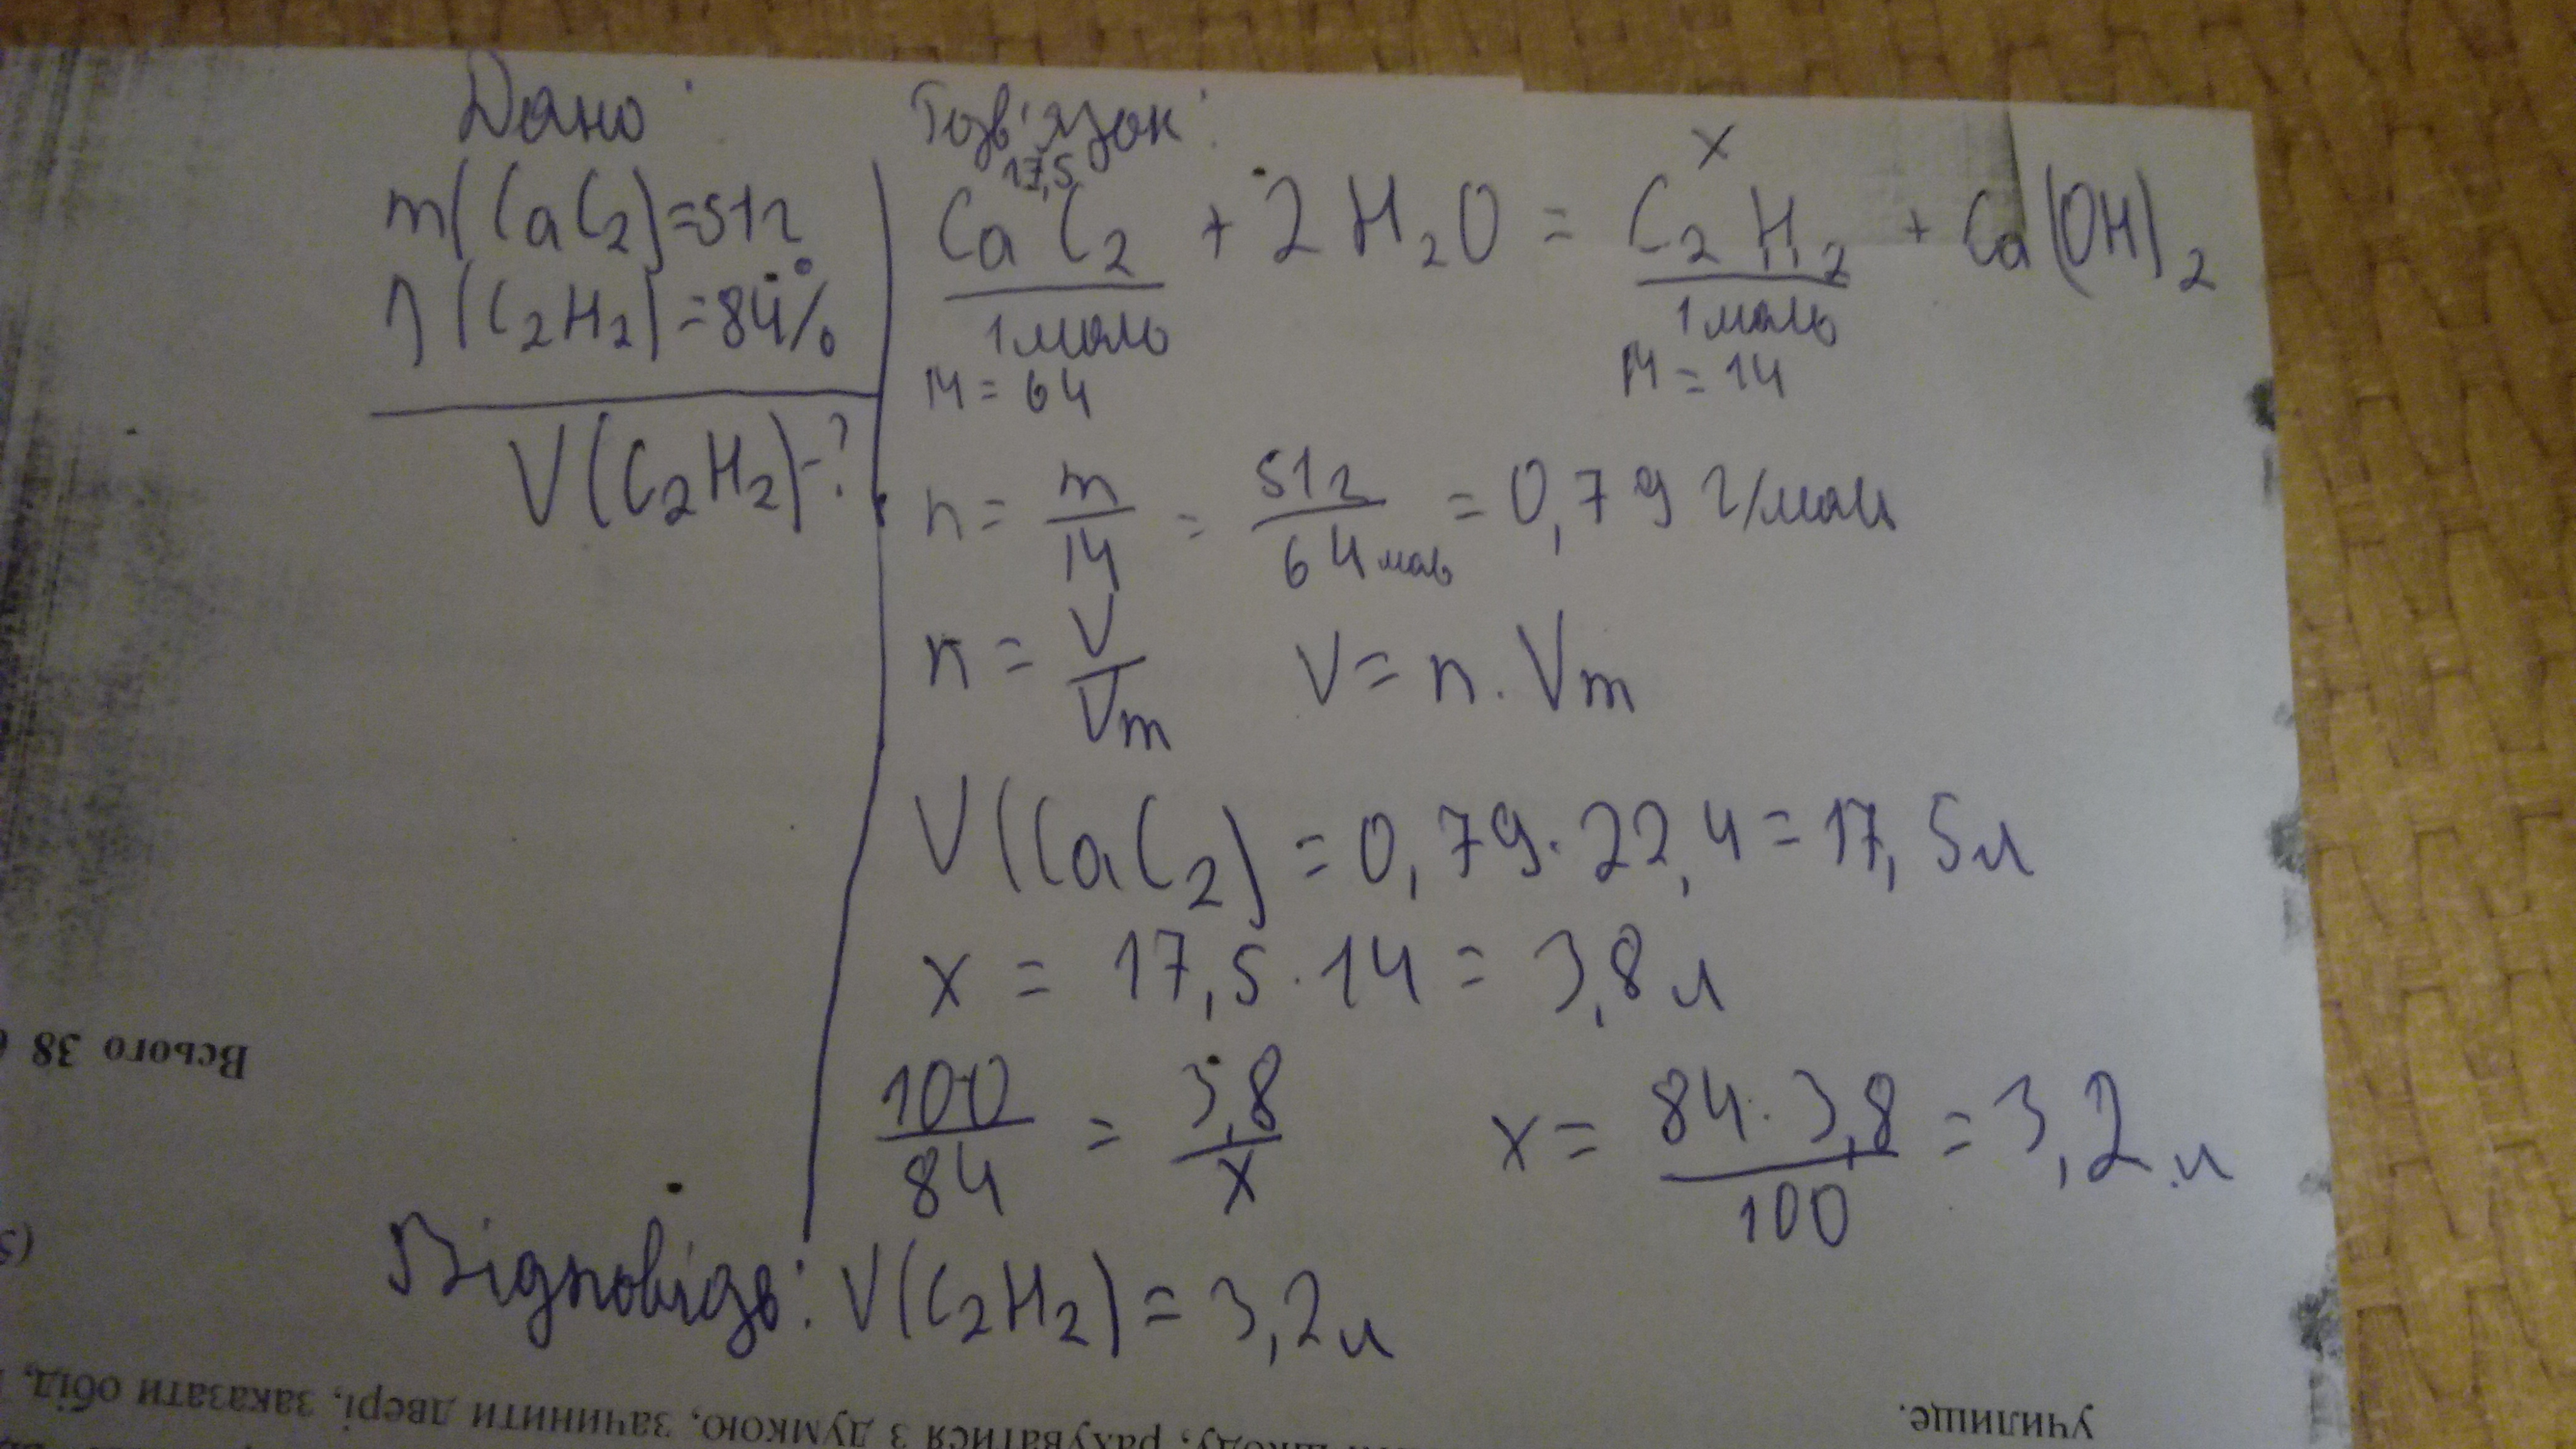 Дано: Розв'язок:
m(CaC2)=51г
η(C2H2)=84%
V(C2H2)-?
17,5 x
CaC2 + 2H2O = C2H2 + Ca(OH)2
1моль 1моль
M = 64 M = 14
n = m/M = 51г/64моль = 0,79 г/моль
n = V/Vm V = n · Vm
V(CaC2) = 0,79 · 22,4 = 17,5л
x = 17,5 · 14 = 3,8 л
100/84 = 3,8/x x = 84 · 3,8/100 = 3,2 л
Відповідь: V(C2H2) = 3,2 л
Всього 38
училище.
рахуватися з думкою, зачинити двері, заказати обід,